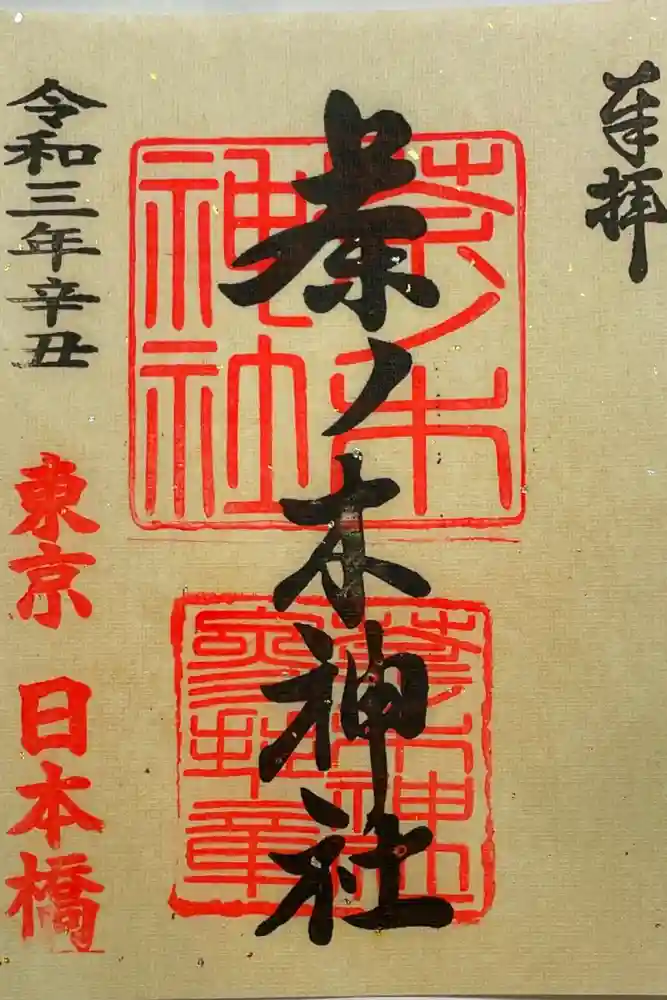 奉拝
茶ノ木神社
茶ノ木
神社
茶ノ木神社
參拜章
令和三年辛丑
東京 日本橋